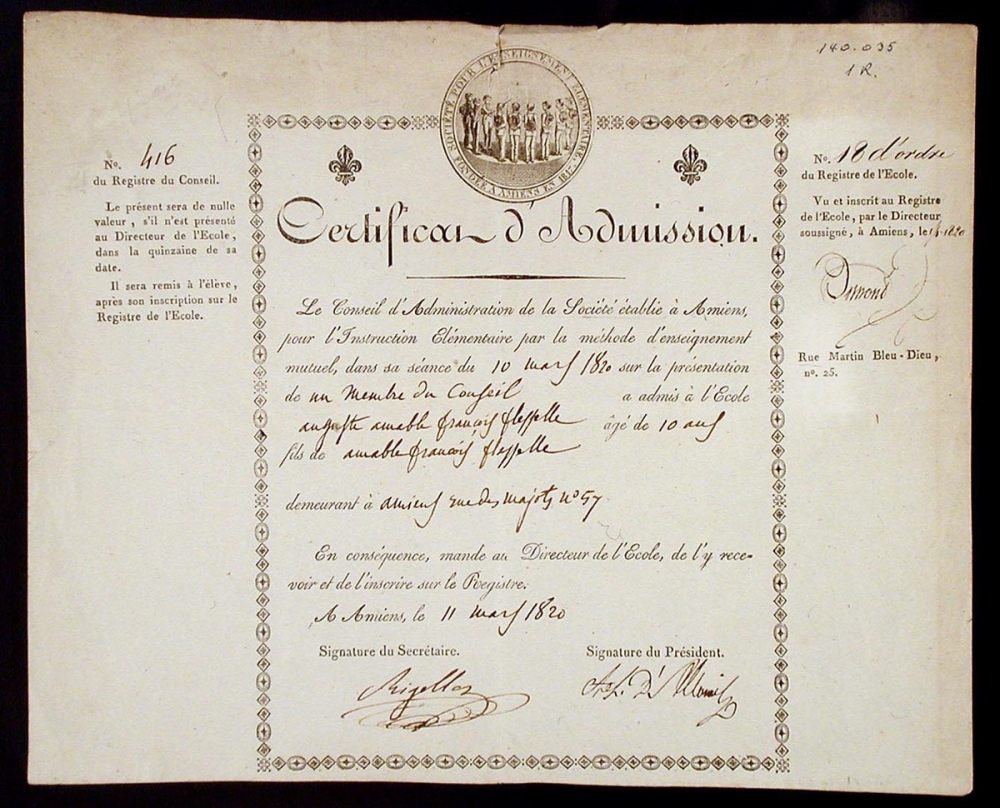 140.035
1 R.
SOCIÉTÉ POUR L'ENSEIGNEMENT ÉLÉMENTAIRE,
FONDÉE A AMIENS EN 1817.
No. 416
du Registre du Conseil.
Le présent sera de nulle
valeur, s'il n'est présenté
au Directeur de l'Ecole,
dans la quinzaine de sa
date.
Il sera remis à l'élève,
après son inscription sur le
Registre de l'Ecole.
Certificat d'Admission.
Le Conseil d'Administration de la Société établie à Amiens,
pour l'Instruction Elémentaire par la méthode d'enseignement
mutuel, dans sa séance du 10 mars 1820 sur la présentation
de un Membre du Conseil a admis à l'Ecole
auguste amable françois flesselle âgé de 10 ans
fils de amable françois flesselle
demeurant à amiens rue des majots no 57
En conséquence, mande au Directeur de l'Ecole, de l'y rece-
voir et de l'inscrire sur le Registre.
A Amiens, le 11 mars 1820
Signature du Secrétaire.
Signature du Président.
Rigollot
No. 18 d'ordre
du Registre de l'Ecole.
Vu et inscrit au Registre
de l'Ecole, par le Directeur
soussigné, à Amiens, le 1820
Rue Martin Bleu-Dieu,
no. 25.